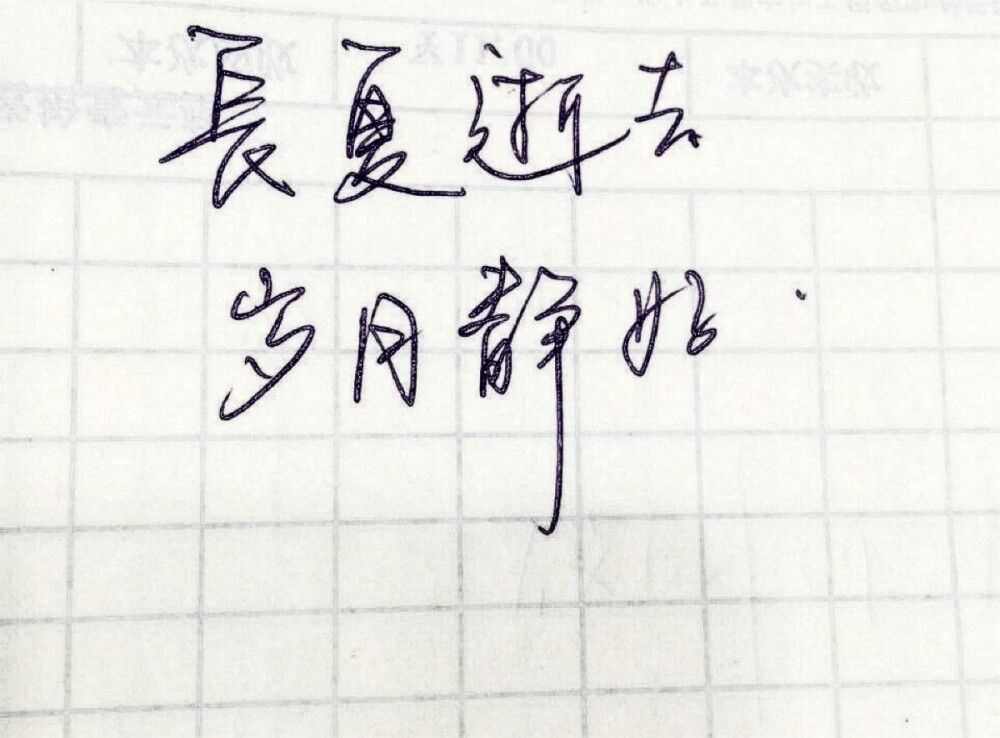 長夏逝去
岁月静好.